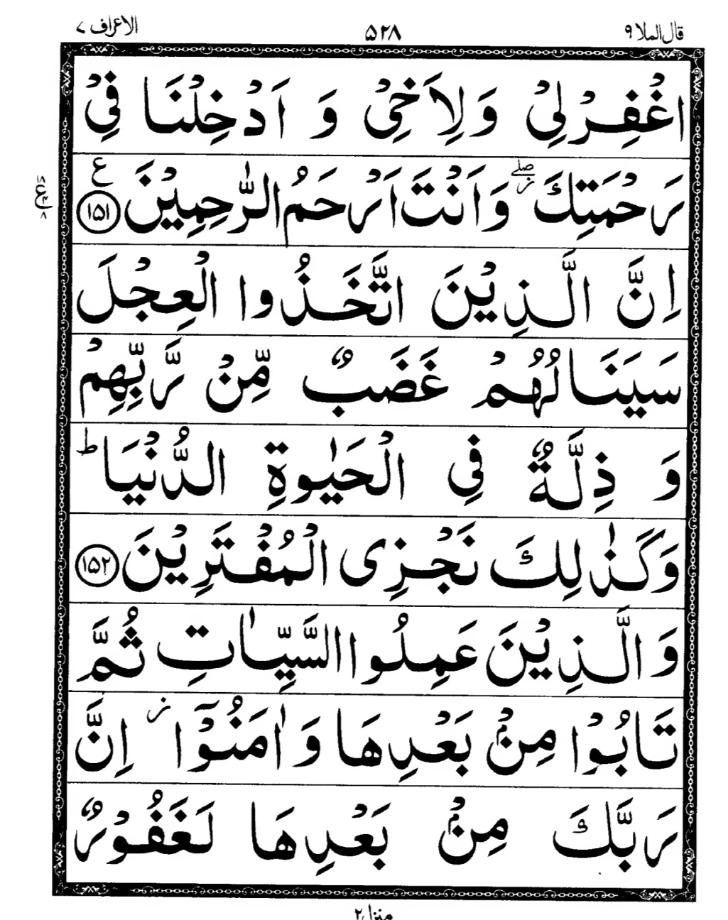 قال الملا ۹ ۵۲۸ الاعراف ۷
اغْفِرْ لِیْ وَ لِاَخِیْ وَ اَدْخِلْنَا فِیْ
رَحْمَتِكَ ۖ٘ وَ اَنْتَ اَرْحَمُ الرّٰحِمِیْنَ ۱۵۱ ع
اِنَّ الَّذِیْنَ اتَّخَذُوا الْعِجْلَ
سَیَنَالُهُمْ غَضَبٌ مِّنْ رَّبِّهِمْ
وَ ذِلَّةٌ فِی الْحَیٰوةِ الدُّنْیَا ؕ
وَ كَذٰلِكَ نَجْزِی الْمُفْتَرِیْنَ ۱۵۲
وَ الَّذِیْنَ عَمِلُوا السَّیِّاٰتِ ثُمَّ
تَابُوْا مِنْۢ بَعْدِهَا وَ اٰمَنُوْۤا ؗ اِنَّ
رَبَّكَ مِنْۢ بَعْدِهَا لَغَفُوْرٌ
منزل ۲